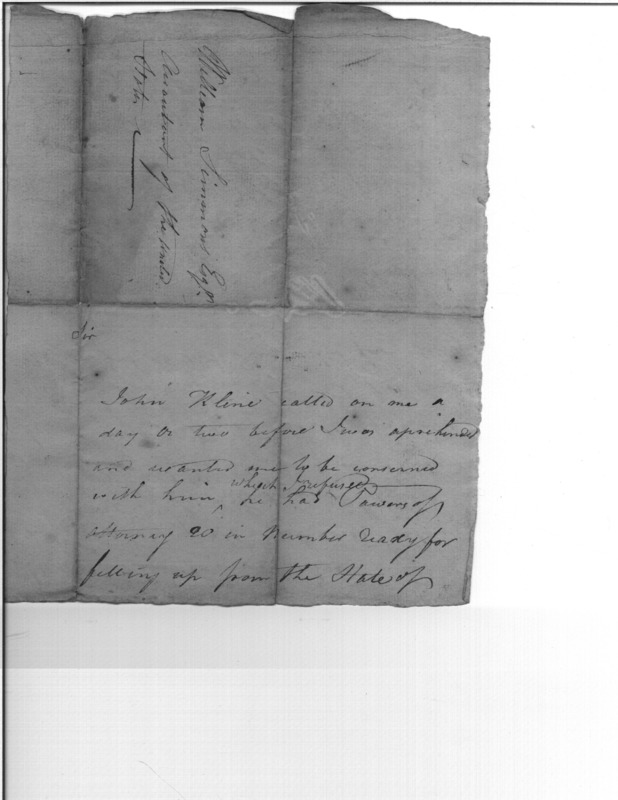 William Simmons Esqr
Accountant of the united
States
Sir
John Kline called on me a
day or two before I was aprihened
and wanted me to be conserned
which I refused
with him he had Powers of
attorney 20 in Number ready for
filling up from the State of